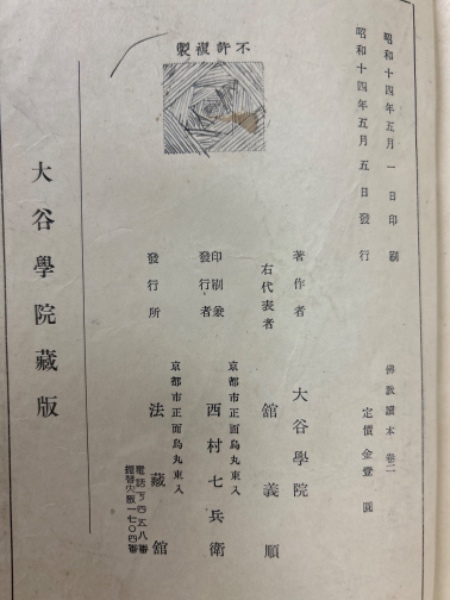 昭和十四年五月一日印刷
昭和十四年五月五日發行
佛敎讀本 卷二
定價金壹圓
不許複製
著作者 大谷學院
右代表者 舘義順
京都市正面烏丸東入
印刷兼發行者 西村七兵衛
京都市正面烏丸東入
發行所 法藏舘
電話下四五八番
振替大阪一七〇四番
大谷學院藏版